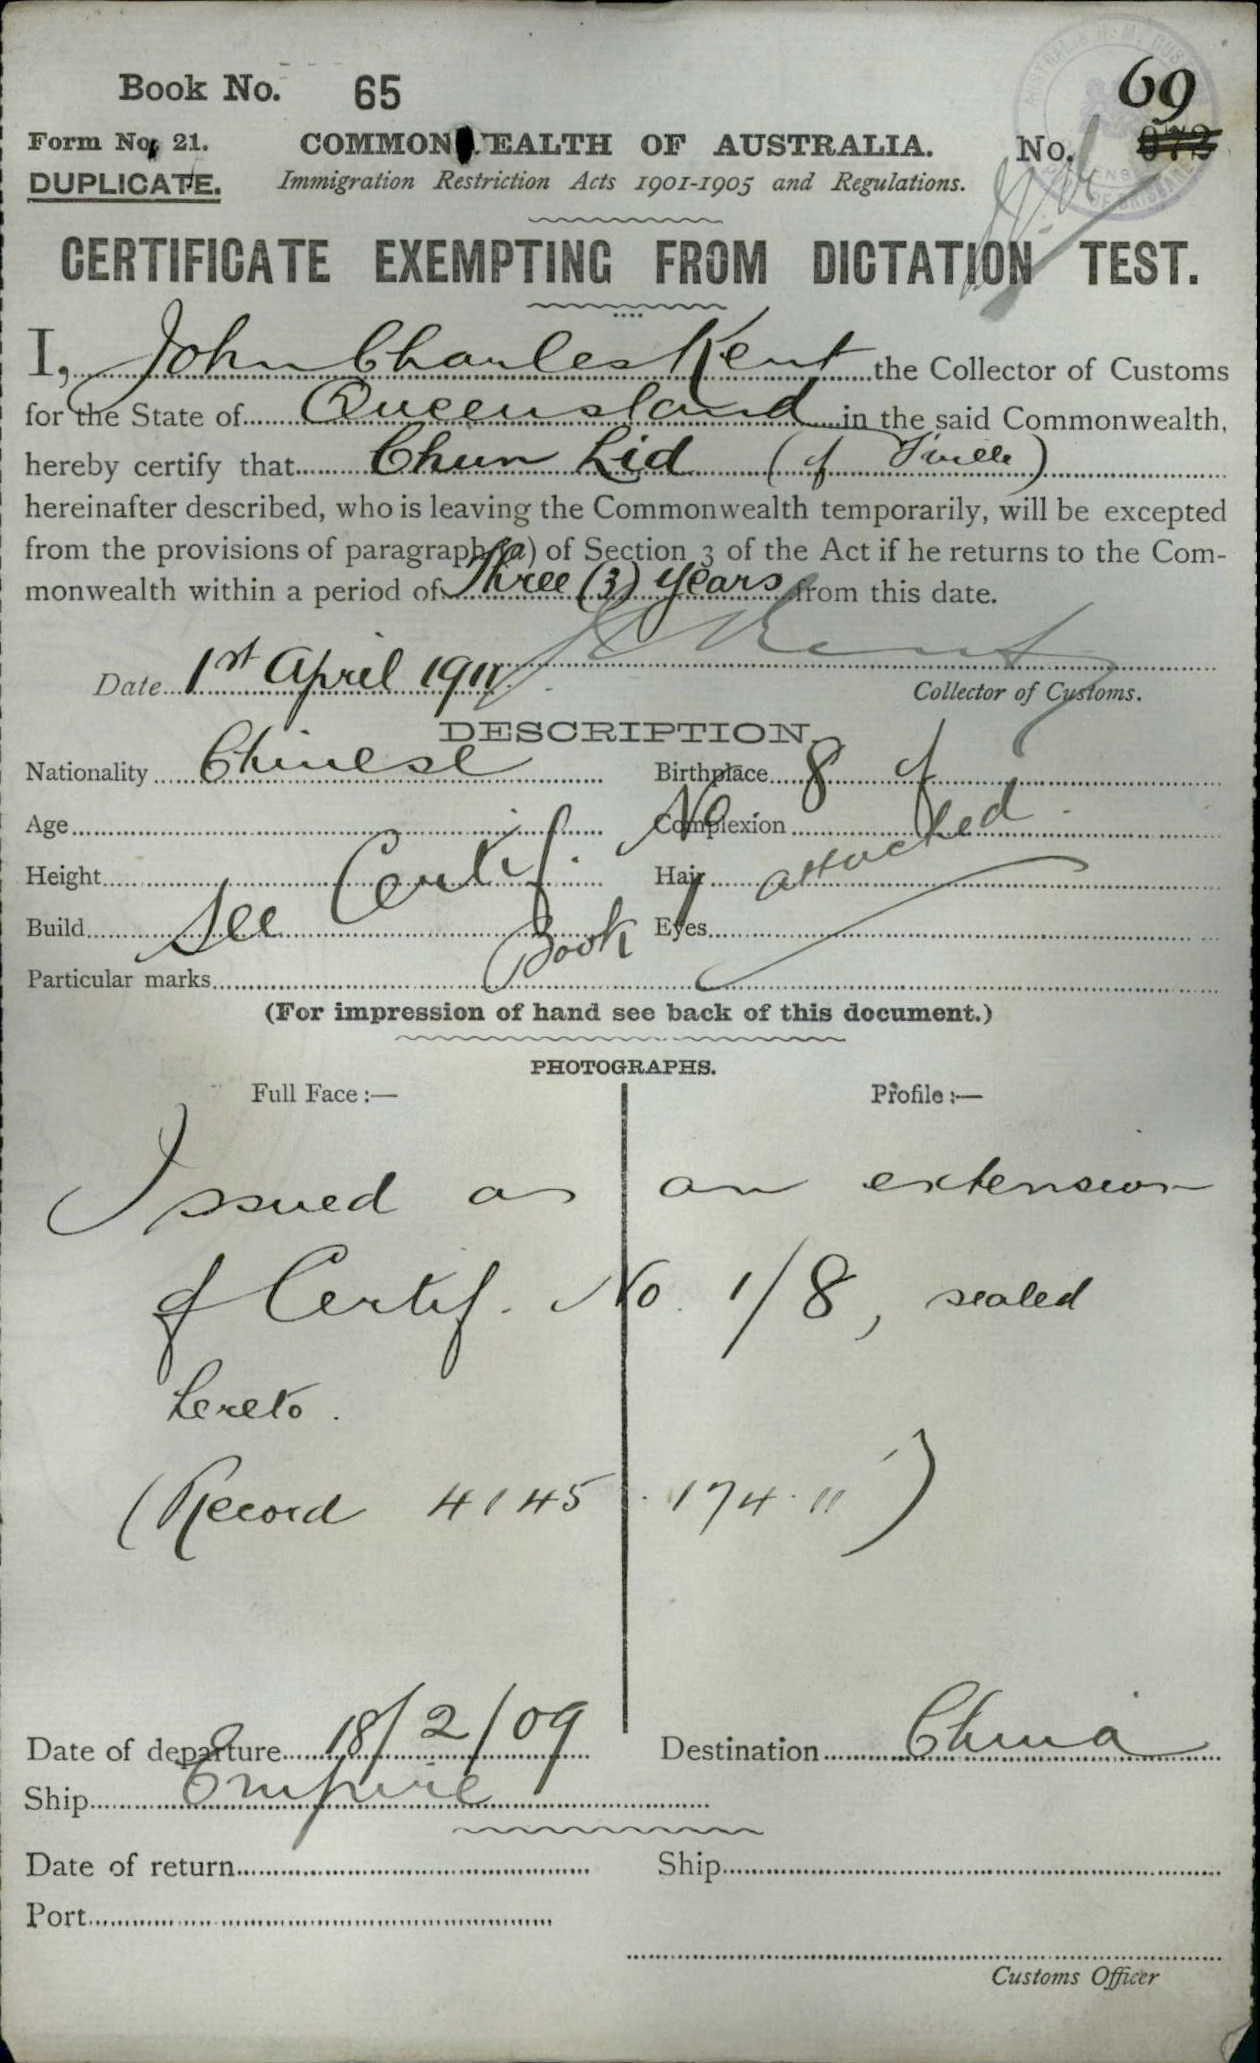 Book No. 65
69
Form No. 21. COMMONWEALTH OF AUSTRALIA. No. 072
DUPLICATE. Immigration Restriction Acts 1901-1905 and Regulations.
CERTIFICATE EXEMPTING FROM DICTATION TEST.
I, John Charles Kent the Collector of Customs
for the State of Queensland in the said Commonwealth,
hereby certify that Chun Lid (of T'ville)
hereinafter described, who is leaving the Commonwealth temporarily, will be excepted
from the provisions of paragraph (a) of Section 3 of the Act if he returns to the Com-
monwealth within a period of Three (3) years from this date.
Date 1st April 1911 Collector of Customs.
DESCRIPTION.
Nationality Chinese Birthplace 8 of
Age Complexion
Height Hair
Build Eyes
See Certif. No
Book 1 attached
Particular marks
(For impression of hand see back of this document.)
PHOTOGRAPHS.
Full Face :— Profile :—
Issued as an extension
of Certif. No. 1/8, sealed
hereto.
(Record 4145 . 174.11)
Date of departure 18/2/09 Destination China
Ship Empire
Date of return Ship
Port
Customs Officer